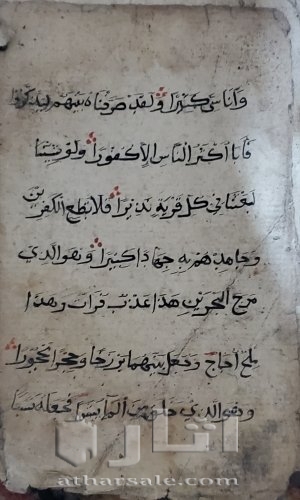 وأناسي كثيرا ولقد صرفناه بينهم ليذكروا
فأبا أكثر الناس إلا كفورا ولو شئنا
لبعثنا في كل قرية نذيرا فلا تطع الكفرين
وجاهدهم به جهادا كبيرا وهو الذي
مرج البحرين هذا عذب فرات وهذا
ملح أجاج وجعل بينهما برزخا وحجرا محجورا
وهو الذي خلق من الما بشرا فجعله نسبا
آثار
atharsale.com